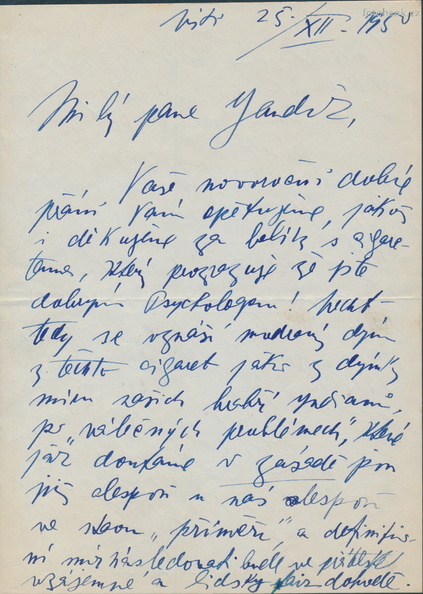 25. XII. 195
Milý pane Jandíř,
Vaše novoroční dobré
přání Vám opětujeme, jakož
i děkujeme za balík s cigare-
tama, který prozrazuje že jste
dobrým Psychologem! Nechť
tedy se vznáší modravý dým
z těchto cigaret jako z dýmky
míru našich hrabří Indiánů,
po "válečných problémech", které
již doufáme v zásadě jsou
již alespoň u nás alespoň
ve stavu "příměří", a definitiv-
ní mír následovati bude ve
vzájemné a lidsky dohodě.